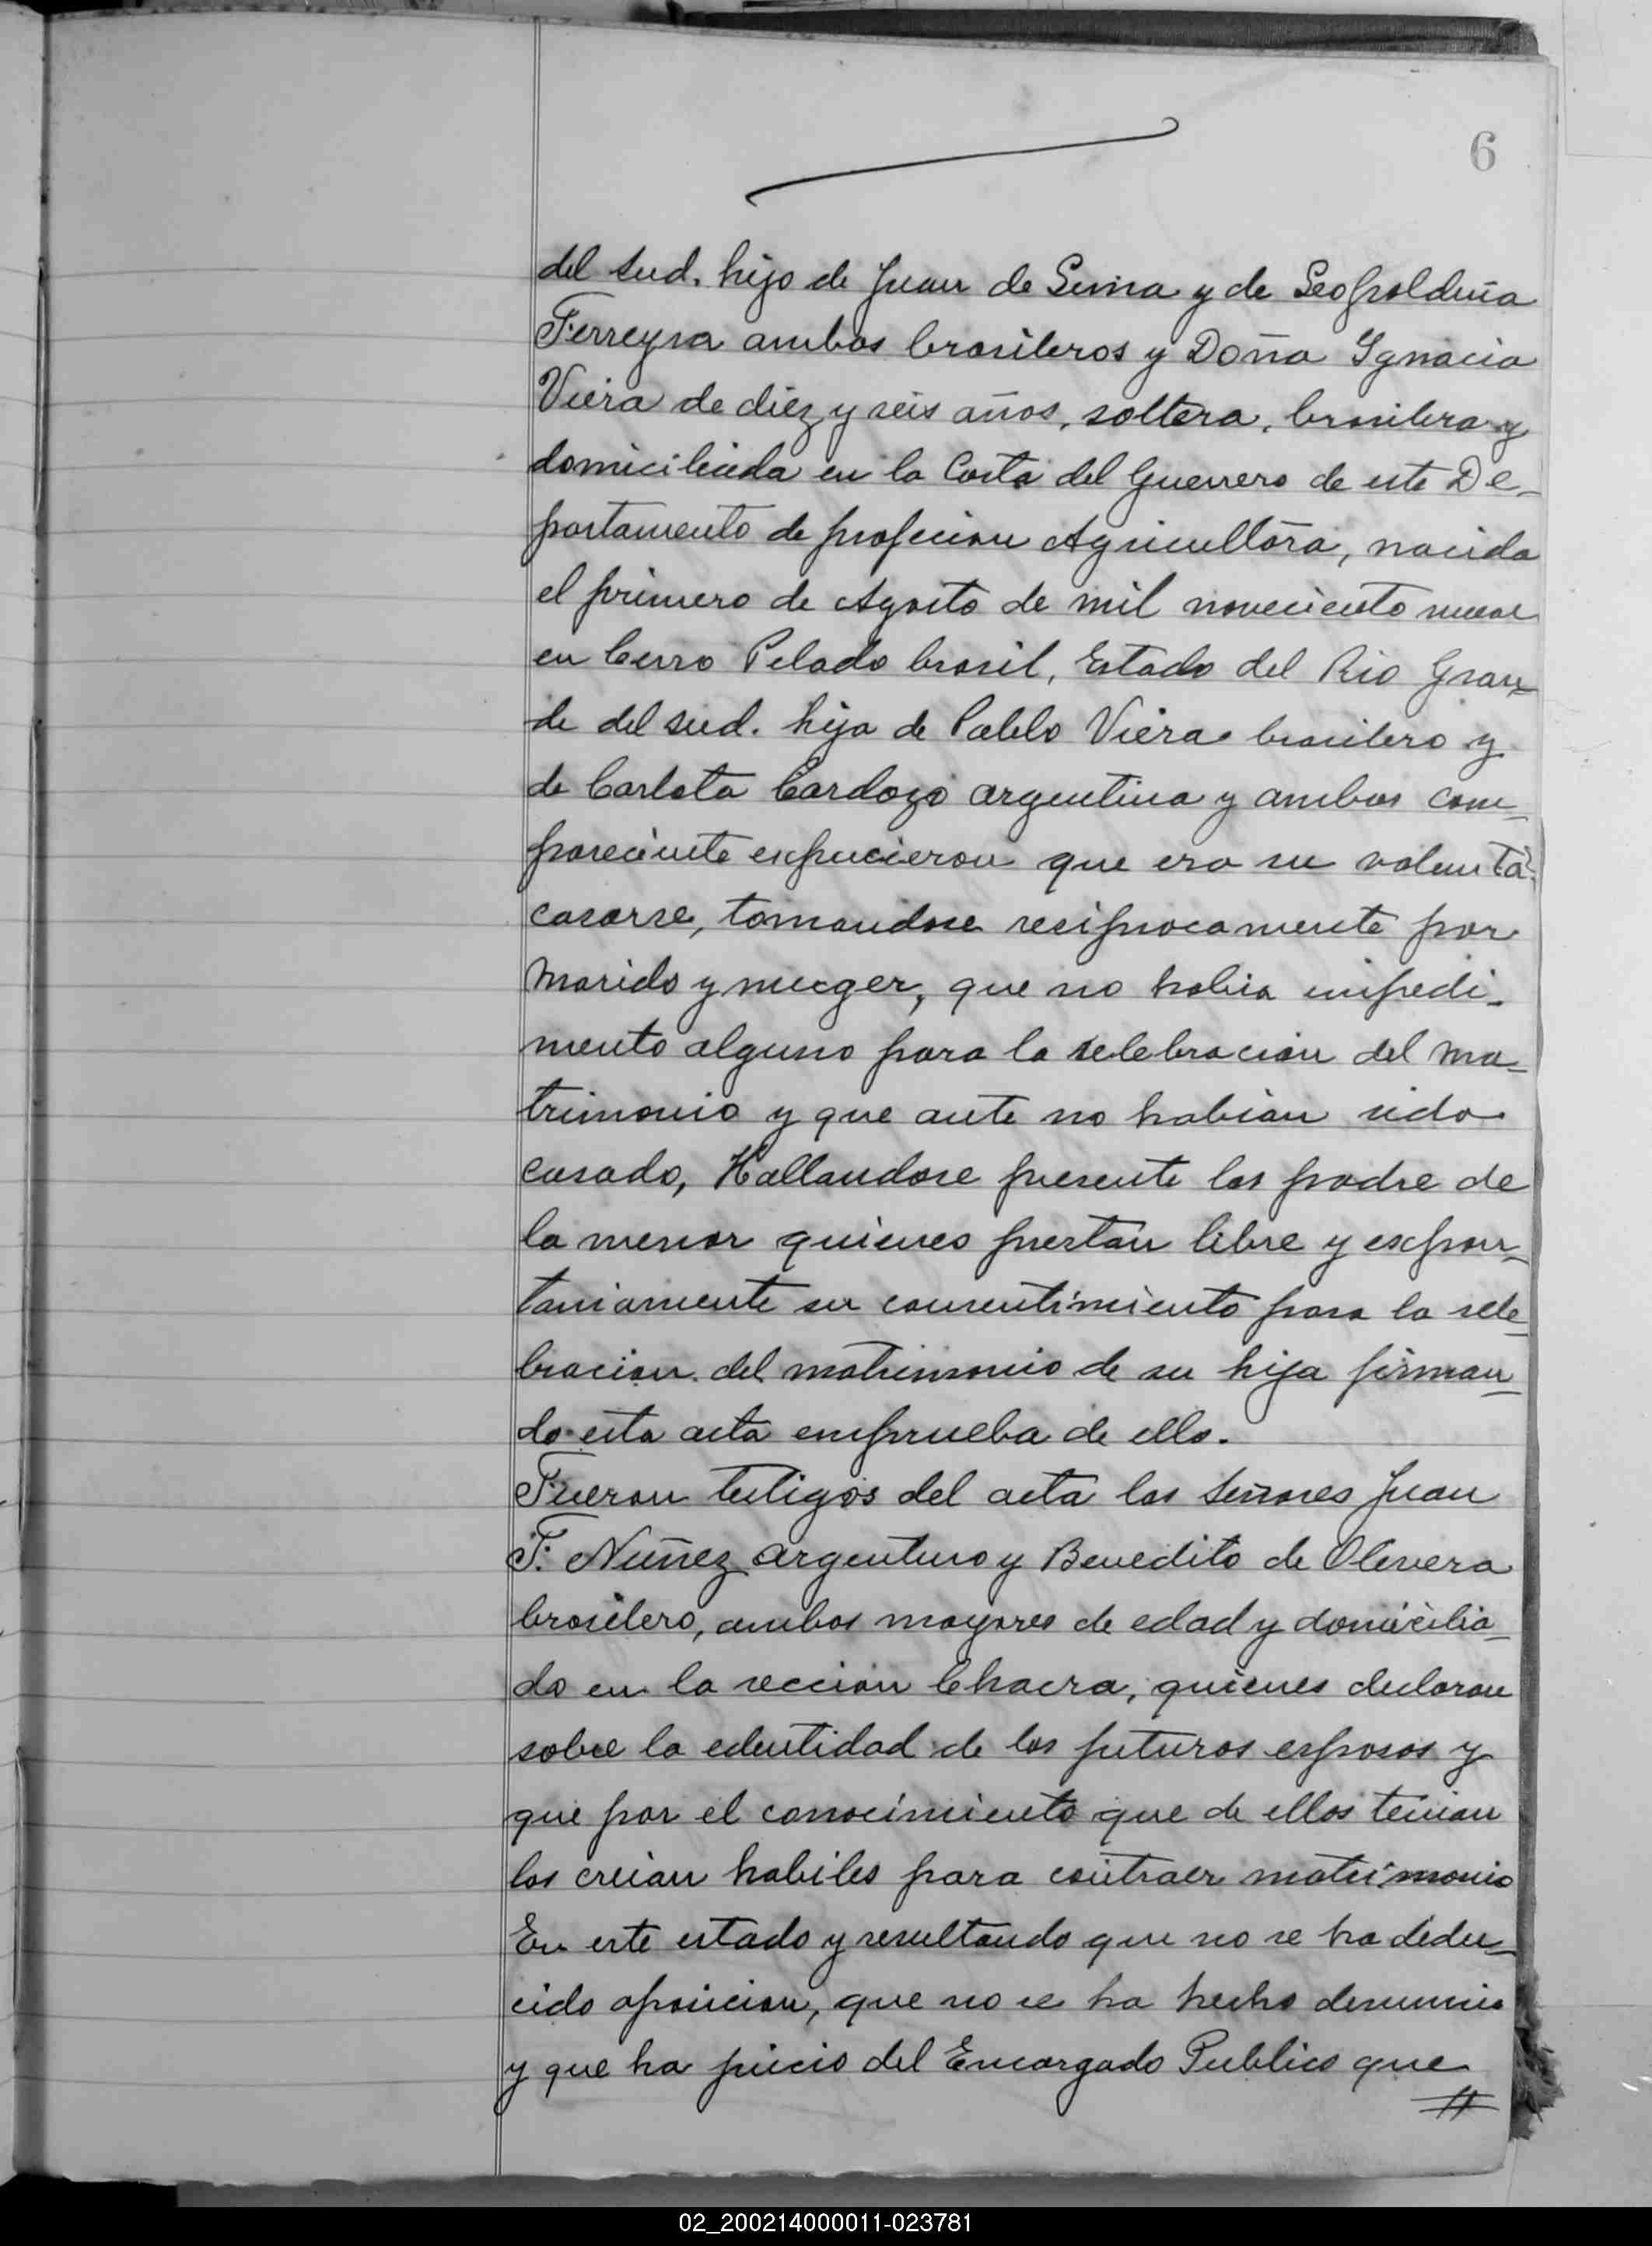 6
del sud. hijo de Juan de Lima y de Leopoldina
Ferreyra ambos brasileros y Doña Ignacia
Viera de diez y seis años, soltera, brasilera y
domiciliada en la Costa del Guerrero de este De-
partamento de profecion Agricultora, nacida
el primero de Agosto de mil noveciento nueve
en Cerro Pelado brasil, Estado del Rio Gran-
de del sud. hija de Pablo Viera brasilero y
de Carlota Cardozo argentina y ambos com-
pareciente expucieron que era su volunta
casarse, tomandose reciprocamente por
Marido y muger, que no habia impedi-
mento alguno para la selebracion del ma-
trimonio y que ante no habian sido
casado, Hallandose presente los padre de
la menor quienes prestan libre y expon-
taniamente su consentimiento para la sele-
bracion del matrimonio de su hija firman-
do esta acta emprueba de ello.
Fueron testigos del acta los señores Juan
F. Nuñez argentino y Benedito de Olivera
brasilero, ambos mayores de edad y domicilia-
do en la seccion Chacra, quienes declaron
sobre la edentidad de los futuros esposos y
que por el conocimiento que de ellos tenian
los creian habiles para contraer matrimonio
En este estado y resultando que no se ha dedu-
cido oposicion, que no se ha hecho denuncia
y que ha juicio del Encargado Publico que
02_200214000011-023781